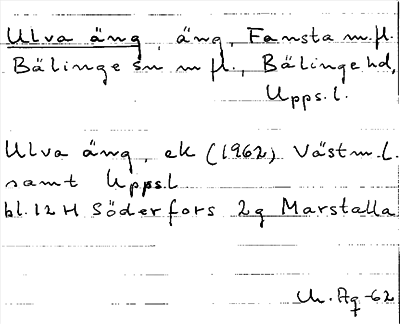 Ulva äng, äng, Fansta m.fl.
Bälinge sn m fl., Bälinge hd,
Upps.l.
Ulva äng, ek (1962) Västm.l.
samt Upps.l
bl.12 H Söderfors 2g Marstalla
Ch. Ag -62